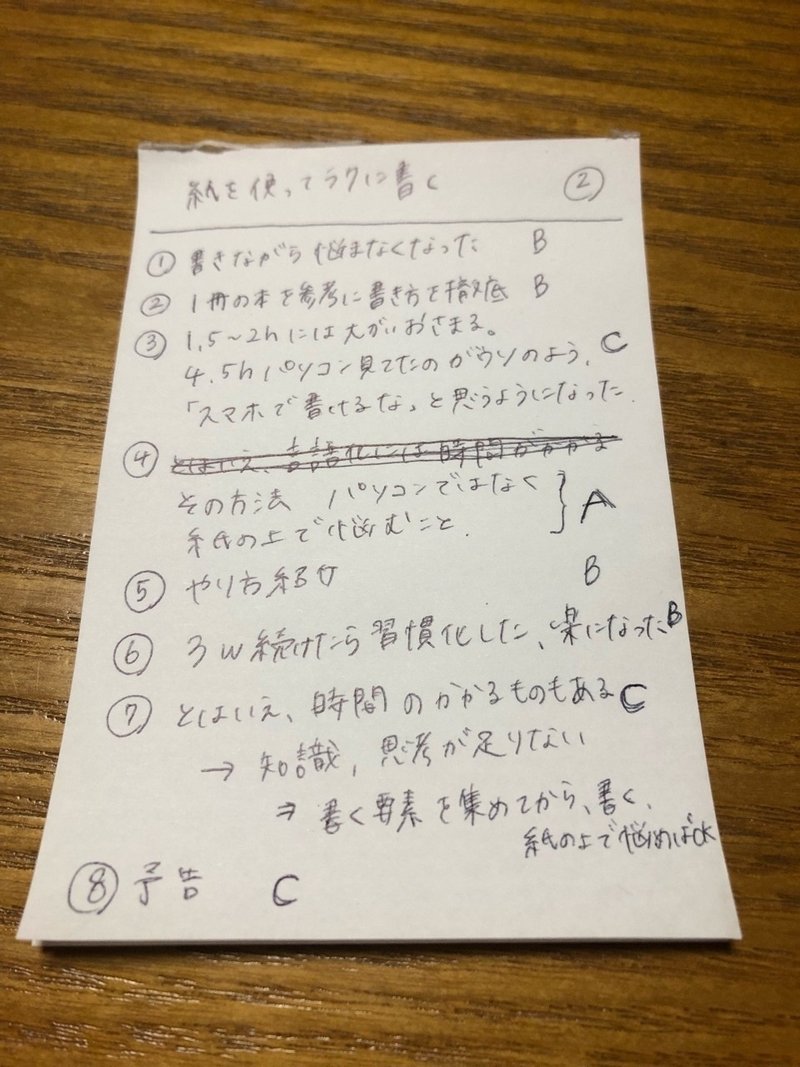 紙を使ってラクに書く ②
① 書きながら悩まなくなった B
② 1冊の本を参考に書き方を徹底 B
③ 1.5~2hには大がいおさまる。
4.5hパソコン見てたのがウソのよう、 C
「スマホで書けるな」と思うようになった.
④ とはいえ、言語化には時間がかかる
その方法 パソコンではなく
紙の上で悩むこと. A
⑤ やり方紹介 B
⑥ 3W続けたら習慣化した、楽になった B
⑦ とはいえ、時間のかかるものもある C
→ 知識, 思考が足りない
⇒ 書く要素を集めてから、書く、
紙の上で悩めばOK
⑧ 予告 C